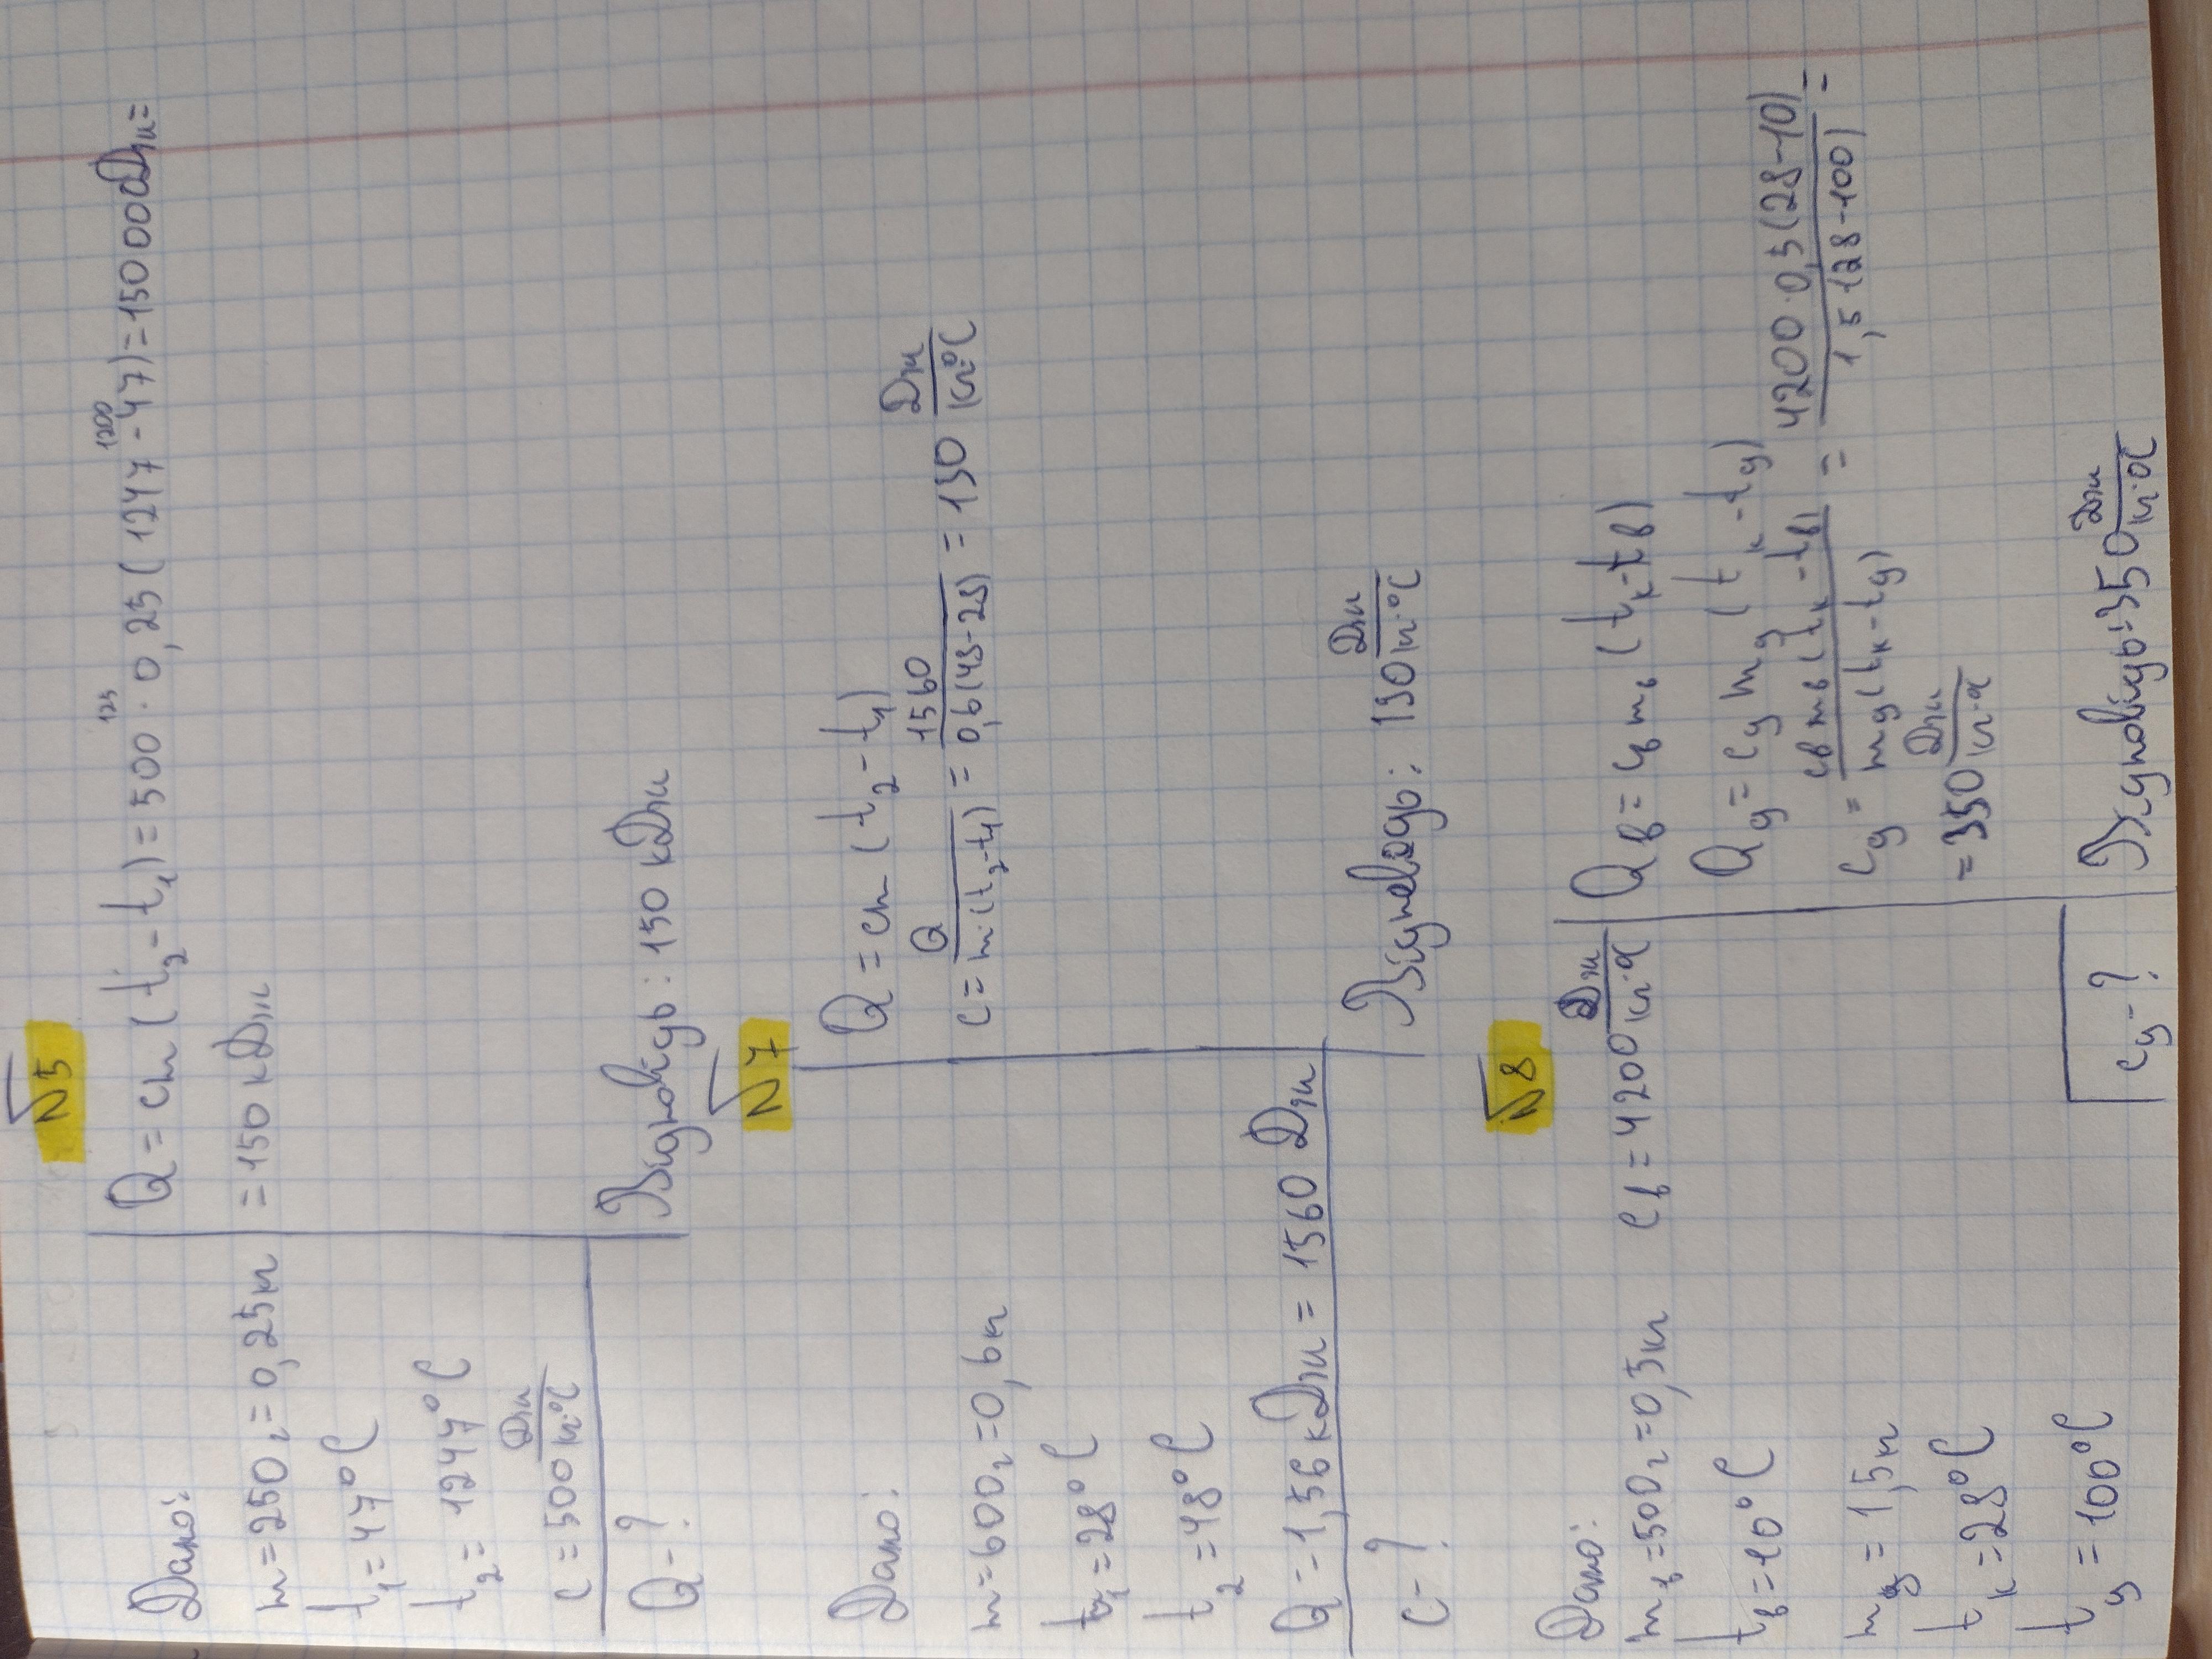 №5
Дано:
m=250г=0,25кг
t₁=47°C
t₂=1247°C
c=500 Дж/кг·°C
Q-?
Q=cm(t₂-t₁)=500·0,25(1247-47)=150000Дж=
125 1200
=150 кДж
Відповідь: 150 кДж
№7
Дано:
m=600г=0,6кг
t₁=28°C
t₂=48°C
Q=1,56 кДж=1560 Дж
c-?
Q=cm(t₂-t₁)
c= Q/m(t₂-t₁) = 1560/0,6(48-28) = 130 Дж/кг·°C
Відповідь: 130 Дж/кг·°C
№8
Дано:
mв=500г=0,5кг cв=4200 Дж/кг·°C
tв=10°C
my=1,5кг
tк=28°C
ty=100°C
cy-?
Qв=cвmв(tк-tв)
Qy=cymy(tк-ty)
cy= cвmв(tк-tв)/my(tк-ty) = 4200·0,5(28-10)/1,5·(28-100) =
=350 Дж/кг·°C
Відповідь:350 Дж/кг·°C